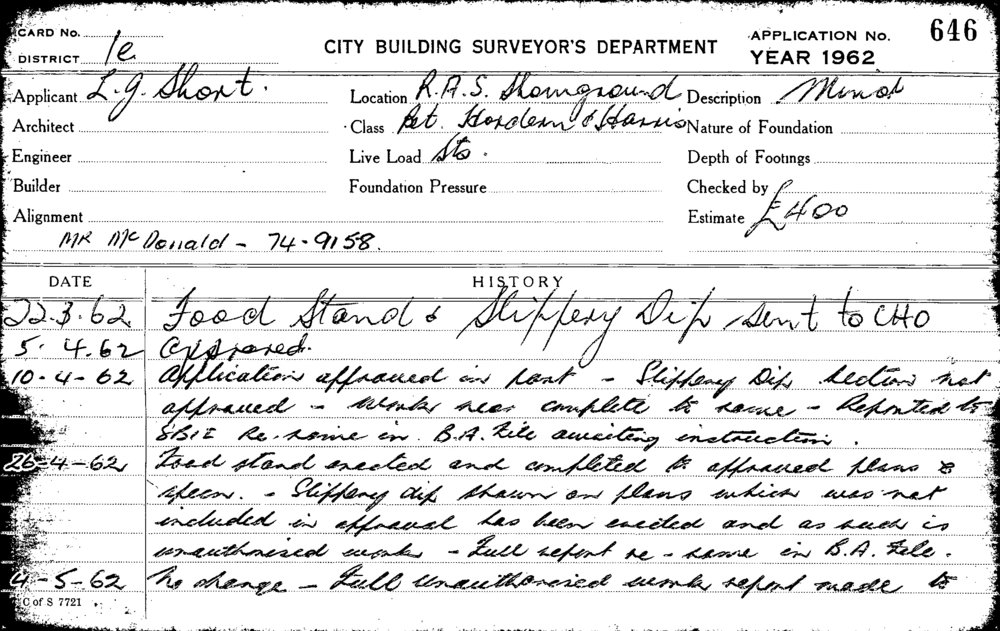 CARD No.
DISTRICT 1e
CITY BUILDING SURVEYOR'S DEPARTMENT
APPLICATION No. 646
YEAR 1962
Applicant L.G. Short.
Location R.A.S. Showground
Description Minor
Architect
Class Bet. Hordern & Harris
Nature of Foundation
Engineer
Live Load Sts.
Depth of Footings
Builder
Foundation Pressure
Checked by
Alignment
Estimate £400
MR McDonald - 74-9158.
DATE HISTORY
22.3.62 Food Stand & Slippery Dip sent to CHO
5.4.62 Approved.
10-4-62 Application approved in part - Slippery Dip section not
approved - work near complete to same - Reported to
SBIE re. same in B.A. File awaiting instruction.
26-4-62 Food stand erected and completed to approved plans &
specn. - Slippery dip shown on plans which was not
included in approval has been erected and as such is
unauthorised work - Full report re - same in B.A. File.
4-5-62 No change - Full unauthorised work report made to
C of S 7721